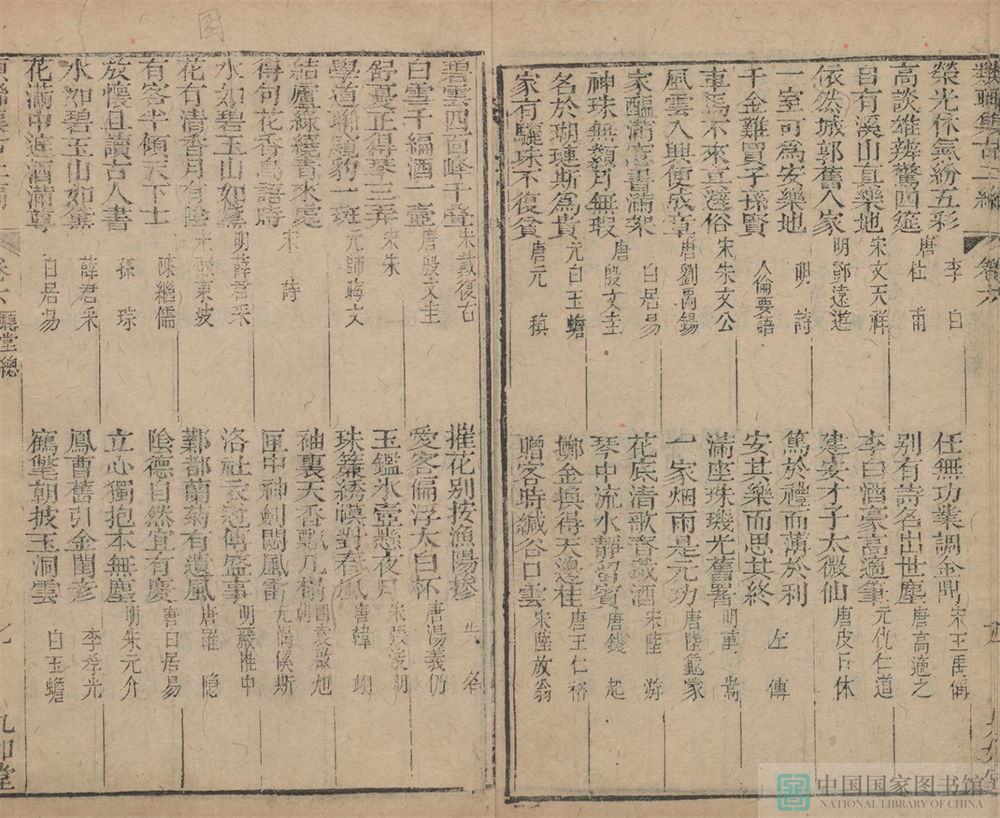 類聯集古二編 卷六
榮光休氣紛五彩 李白
任無功業調金鼎 宋王禹偁
高談雄辨驚四筵 唐杜甫
別有詩名出世塵 唐高適之
自有溪山真樂地 宋文天祥
李白酒豪高適筆 元仇仁道
依然城郭舊人家 明鄭遠遊
建安才子太微仙 唐皮日休
一室可為安樂地 明詩
篤於禮而薄於利
千金難買子孫賢 人倫要語
安其樂而思其終 左傳
車馬不來真避俗 宋朱文公
滿座珠璣光舊署 明萬嵩
風雲入興便成章 唐劉禹錫
一家烟雨是元功 唐陸龜蒙
家醞滿壺書滿架 白居易
花底清歌春載酒 宋陸游
神珠無纇月無瑕 唐殷文圭
琴中流水靜留賓 唐錢起
名於瑚璉斯為貴 元白玉蟾
擲金得天邊桂 唐王仁裕
家有驪珠不復貧 唐元稹
贈客時緘谷口雲 宋陸放翁
碧雲四面峰千疊 宋戴復古
摧花別按漁陽摻 失名
白雪千編酒一壺 唐殷文圭
愛客偏浮太白杯 唐湯義仍
舒憂正得琴三弄 宋朱
玉鑑氷壺懸夜月 宋張
學道聊窺豹一斑 元師晦文
珠簾綉幙對春風 唐韓翃
結廬綠繞香來處
袖裏天香飄几榻 國朝袁啟旭
得句花香鳥語時 宋詩
匣中神劍閟風雷 元傒斯
水如碧玉山如黛 明薛君采
洛社衣冠傳盛事 明嚴惟中
花有清香月有陰 宋蘇東坡
鄴都蘭菊有遺風 唐羅隱
有客半傾天下士 陳繼儒
陰德自然宜有慶 唐白居易
放懷且讀古人書 孫琮
立心獨抱本無塵 明朱元介
水如碧玉山如黛 薛君采
鳳曹舊引金閨彥 李季光
花滿中庭酒滿尊 白居易
鶴氅朝披玉洞雲 白玉蟾
卷六 廳堂總 九 九如堂
中国国家图书馆
NATIONAL LIBRARY OF CHINA